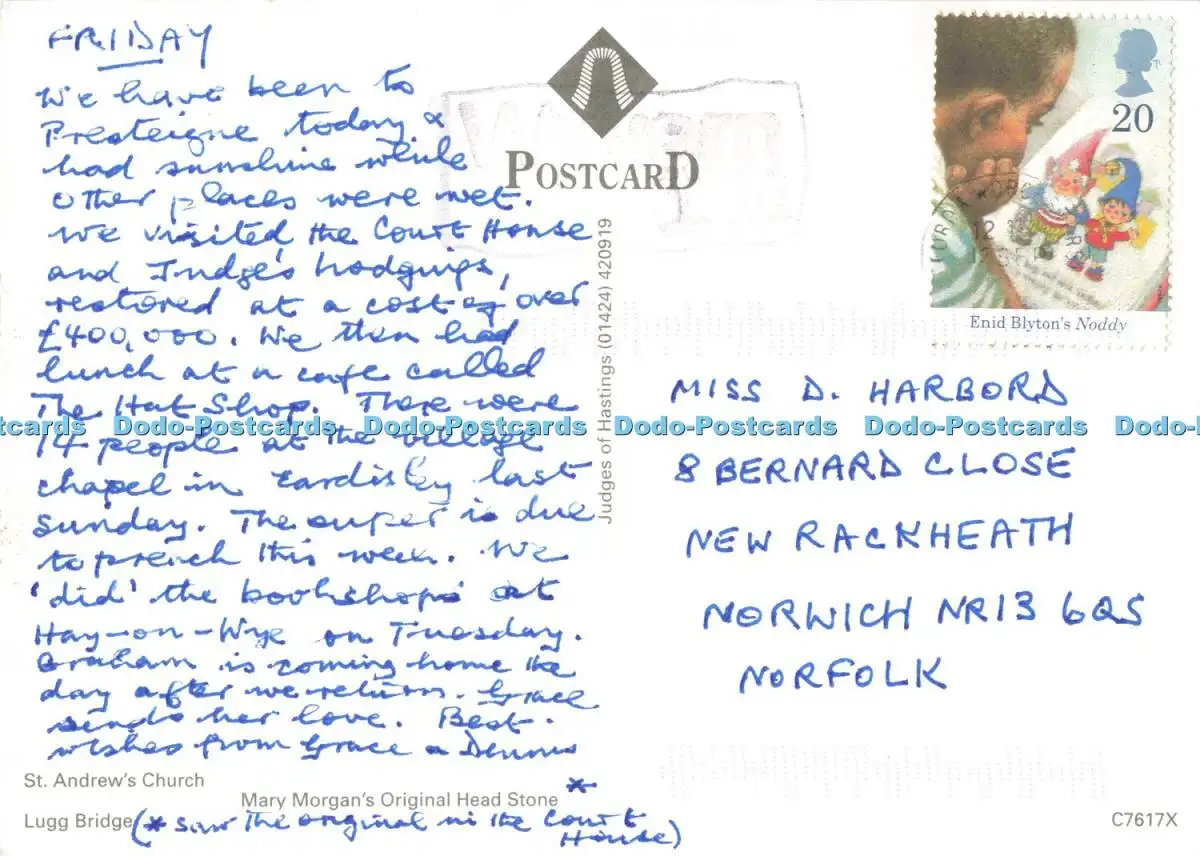 FRIDAY
We have been to
Presteigne today &
had sunshine while
other places were wet.
We visited the Court House
and Judge's lodgings,
restored at a cost of over
£400,000. We then had
lunch at a cafe called
The Hat Shop. There were
14 people at the village
chapel in Eardisley last
Sunday. The super is due
to preach this week. We
'did' the bookshops at
Hay-on-Wye on Tuesday.
Graham is coming home the
day after we return. Grace
sends her love. Best
wishes from Grace & Dennis
St. Andrew's Church
Mary Morgan's Original Head Stone *
Lugg Bridge
(* Saw the original in the Court
House)
POSTCARD
Judges of Hastings, (01424) 420919
20
Enid Blyton's Noddy
MISS D. HARBORD
8 BERNARD CLOSE
NEW RACKHEATH
NORWICH NR13 6QS
NORFOLK
C7617X
Dodo-Postcards Dodo-Postcards Dodo-Postcards Dodo-Postcards